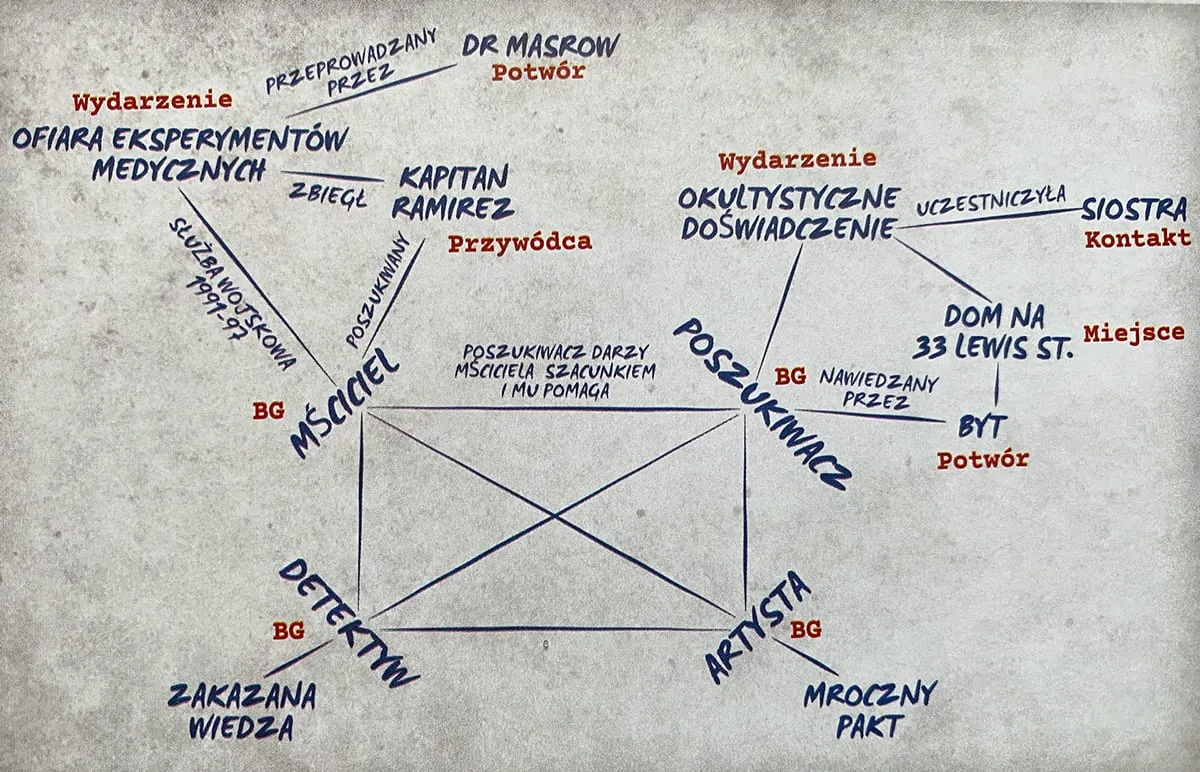 PRZEPROWADZANY
PRZEZ
DR MASROW
Potwór
Wydarzenie
OFIARA EKSPERYMENTÓW
MEDYCZNYCH
ZBIEGŁ
KAPITAN
RAMIREZ
Przywódca
SŁUŻBA WOJSKOWA
1991-97
POSZUKIWANY
Wydarzenie
OKULTYSTYCZNE
DOŚWIADCZENIE
UCZESTNICZYŁA
SIOSTRA
Kontakt
DOM NA
33 LEWIS ST.
Miejsce
BYT
Potwór
NAWIEDZANY
PRZEZ
BG
MŚCICIEL
POSZUKIWACZ DARZY
MŚCICIELA SZACUNKIEM
I MU POMAGA
POSZUKIWACZ
BG
DETEKTYW
BG
ZAKAZANA
WIEDZA
ARTYSTA
BG
MROCZNY
PAKT